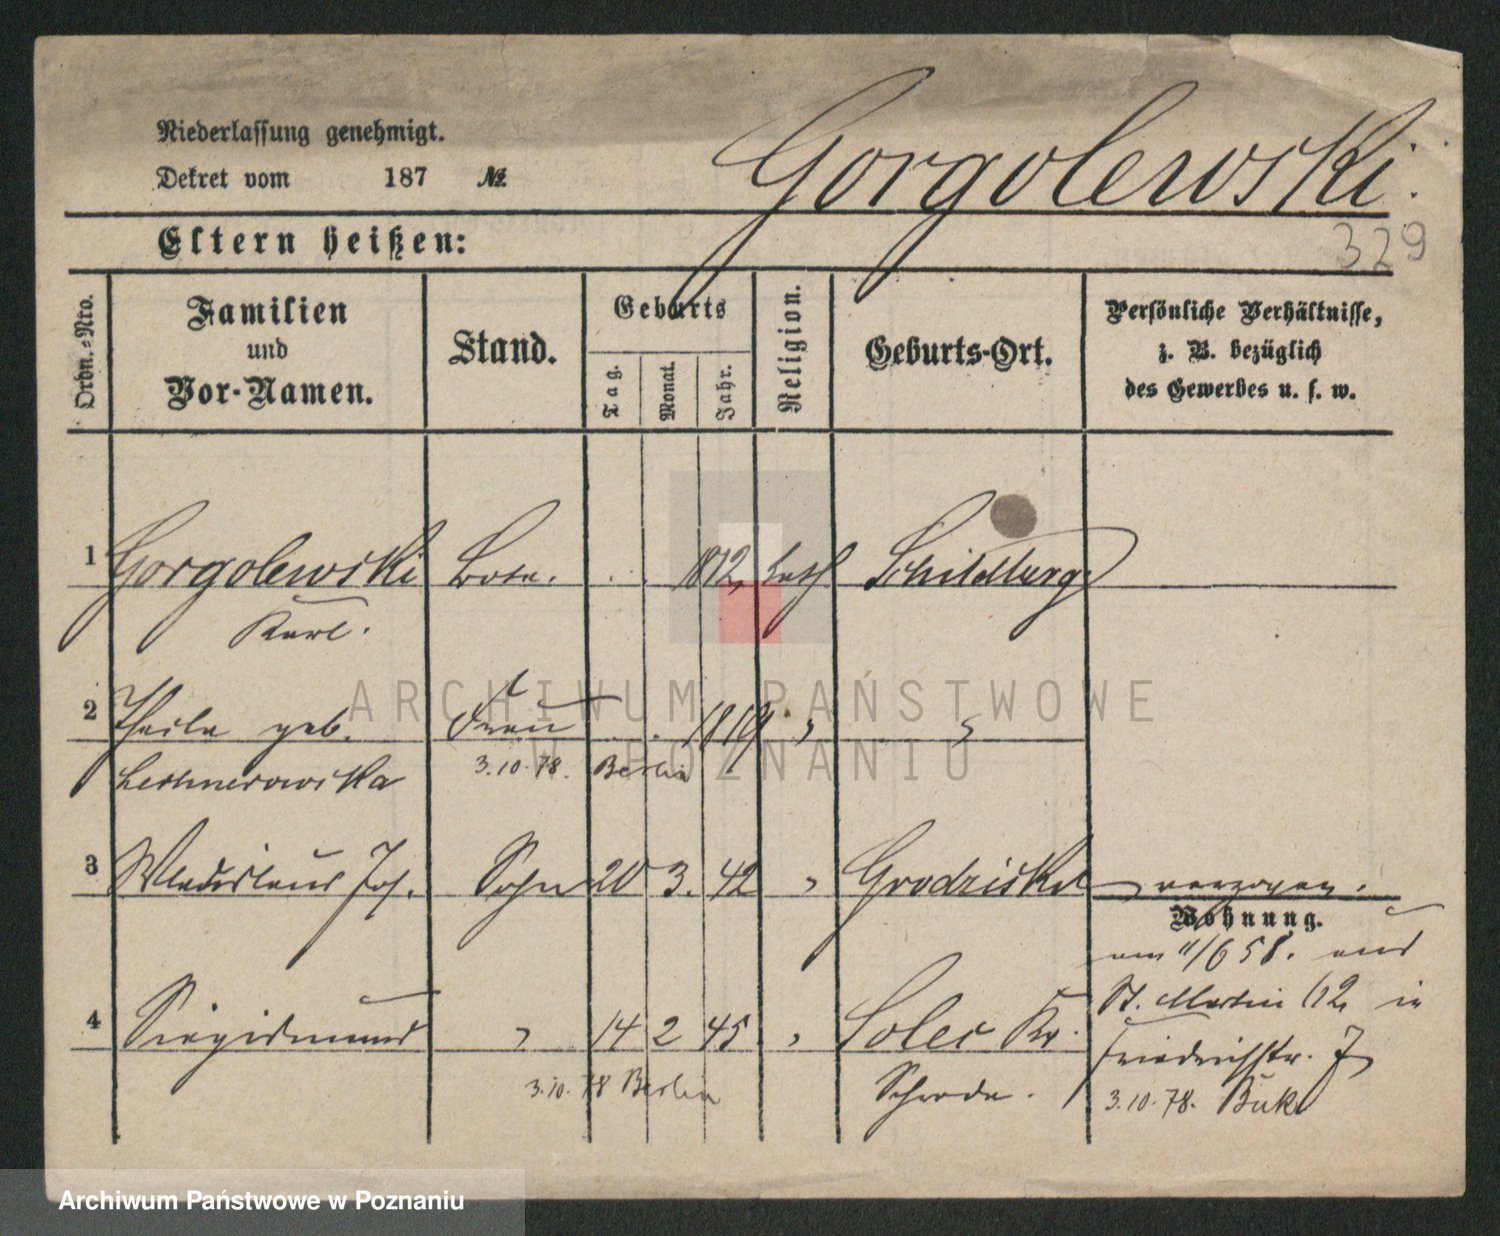 Niederlassung genehmigt.
Dekret vom 187 №
Gorgolewski.
329
Eltern heißen:
Ordn.-Nro.
Familien und Vor-Namen.
Stand.
Geburts
Tag. Monat. Jahr.
Religion.
Geburts-Ort.
Persönliche Verhältnisse,
z. B. bezüglich
des Gewerbes u. s. w.
1 Gorgolewski Bote. 1812, kath Schildberg
Karl.
2 geb. Frau 1819 " "
3.10.78. Berlin
3 Wladislaus Jos. Sohn 20 3. 42 " Grodzisko verzogen.
Wohnung.
am 11/6 58. aus
4 Siegismund " 14 2 45 " Solec Kr.
St. Martin 62 in
Friedrichstr. 7
3.10.78 Berlin
Schroda.
3.10.78. Buk
ARCHIWUM PAŃSTWOWE
W POZNANIU
Archiwum Państwowe w Poznaniu